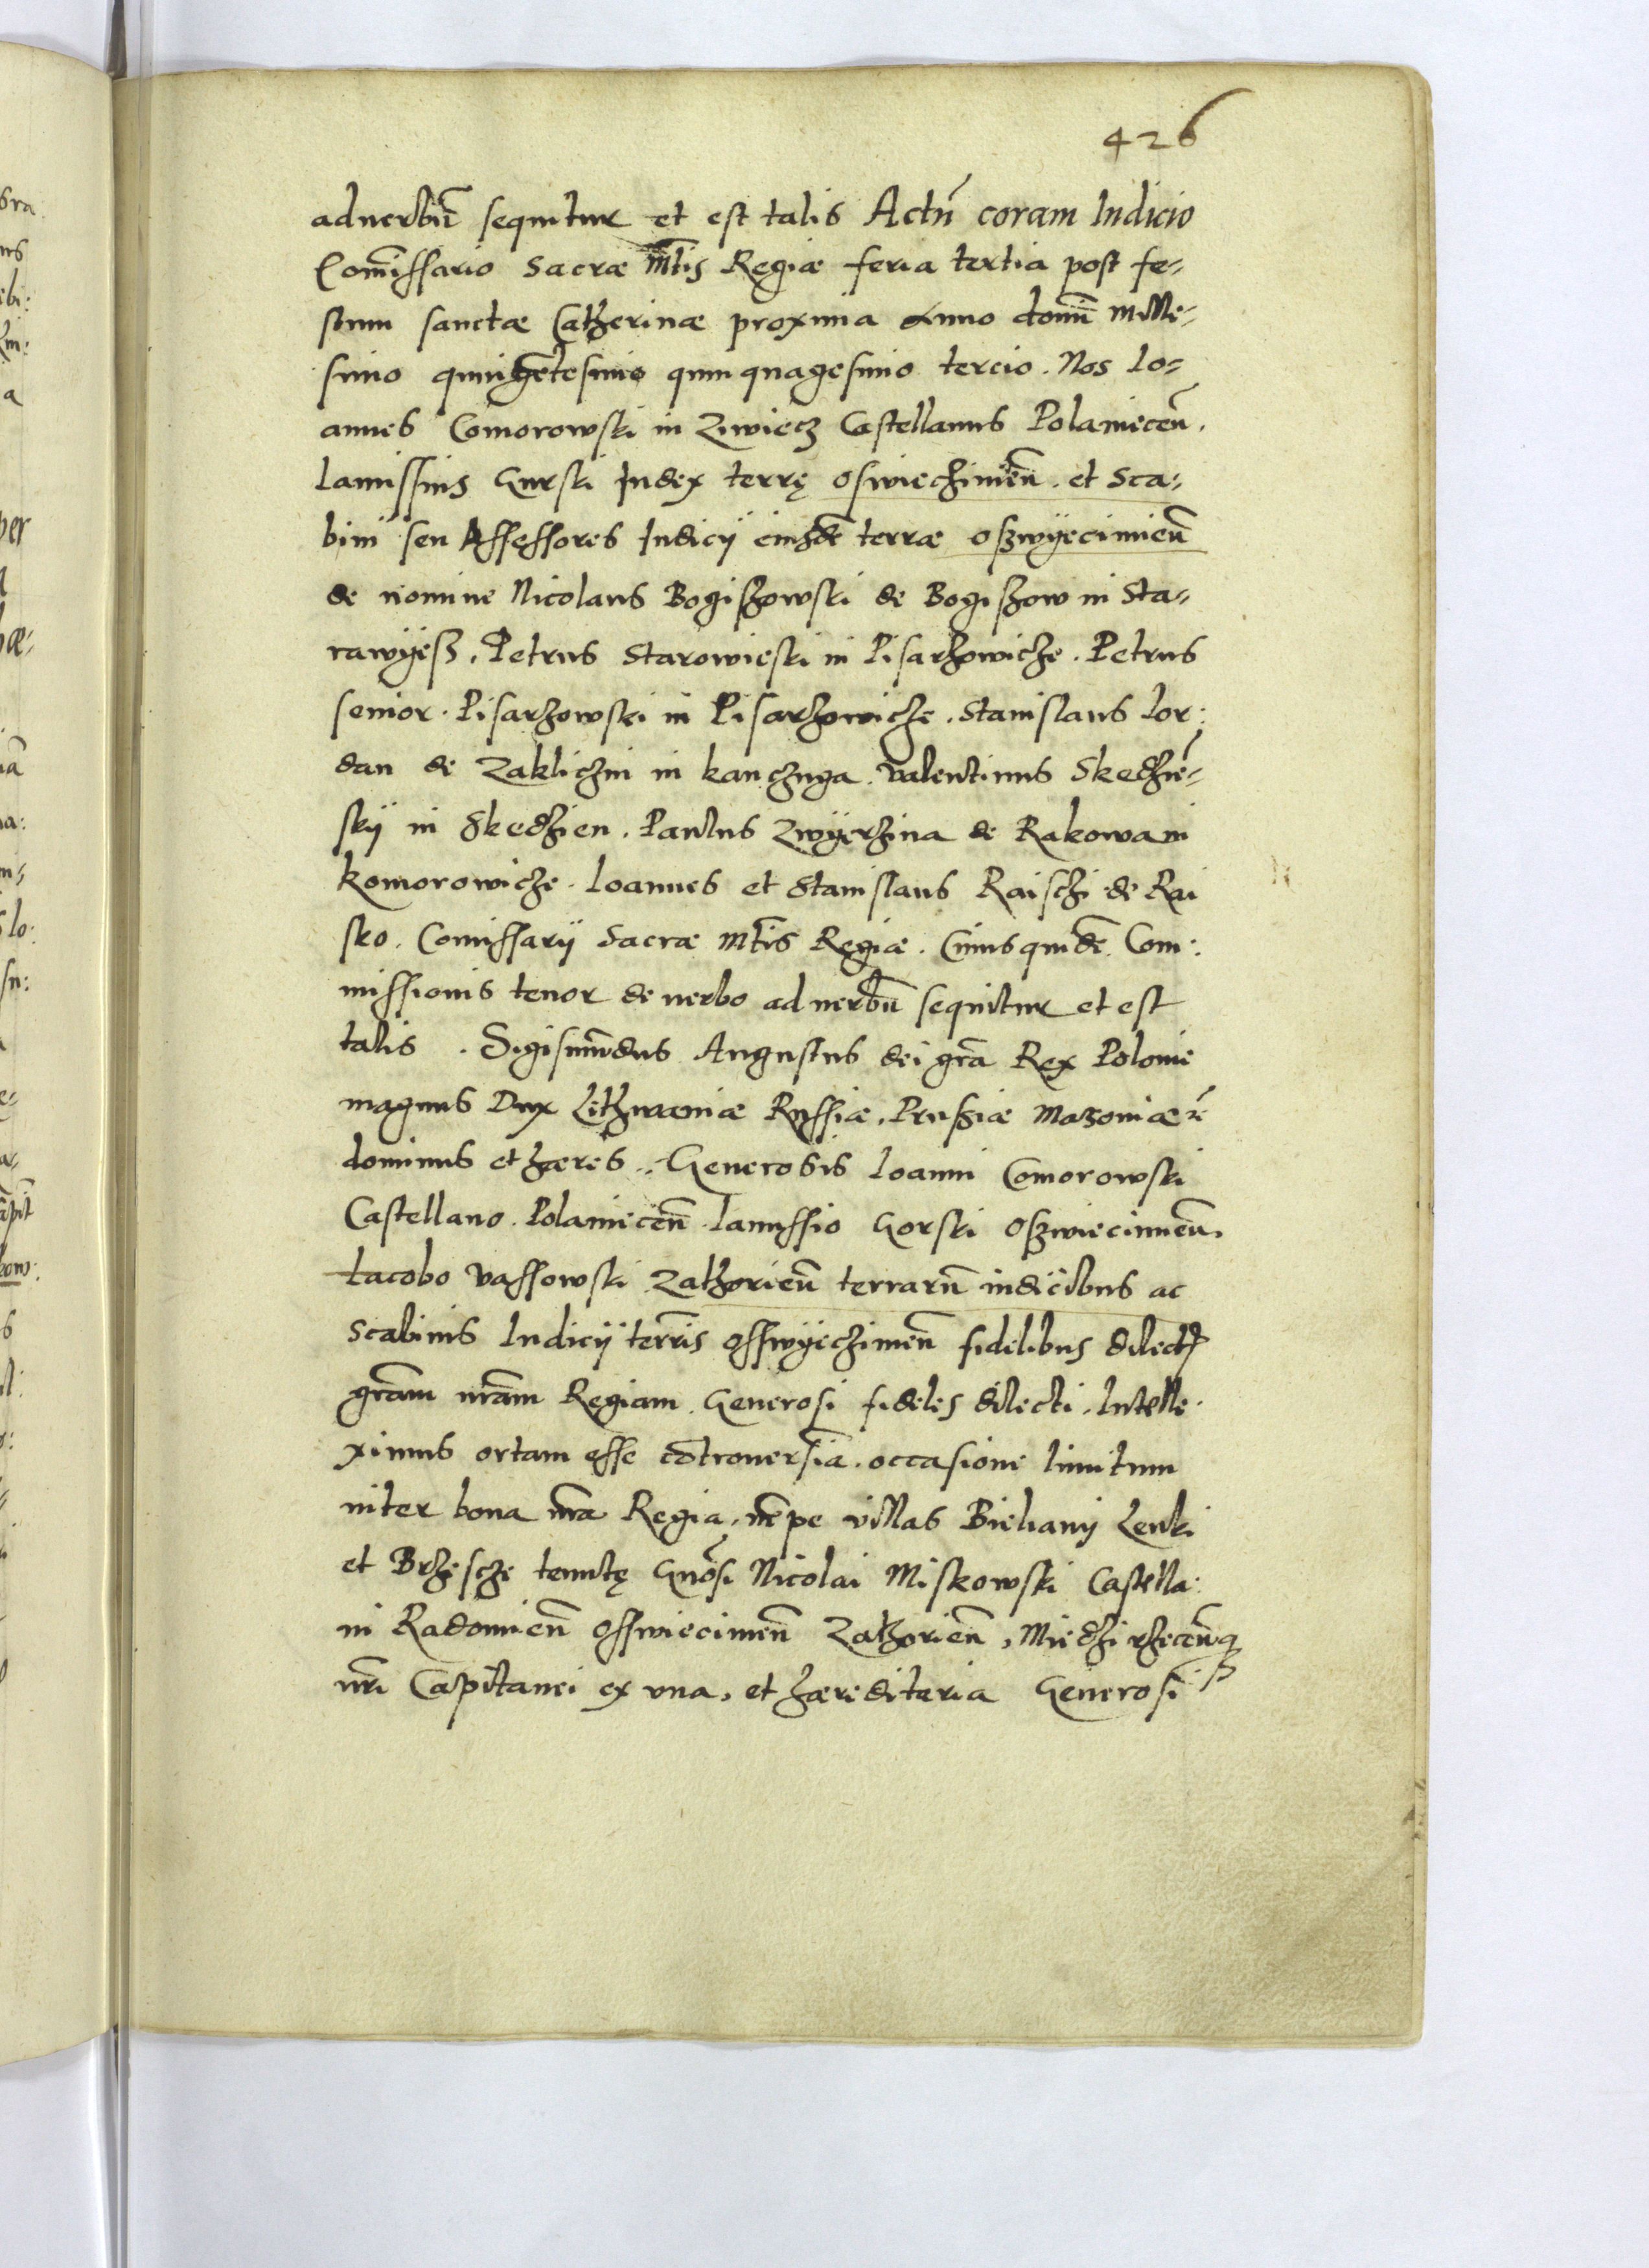 426
aduerbũ sequitur et est talis Actũ coram Iudicio
Comissario Sacræ Mtis Regiæ feria tertia post fe-
stum sanctæ Catherinæ proxima Anno domĩ mille-
simo quingẽtesimo quinquagesimo tercio. Nos Io-
annes Comorowski in Ziwiecz Castellanus Polaniecen̄.
Ianussius Gurski Iudex terrę Osswiechimen̄. et Sca-
bini seu Assessores Iudicÿ eiusdẽ terræ Oszwÿecimien̄
de nomine Nicolaus Bogiszowski de Bogiszow in Sta-
rawÿesz. Petrus Starowieski in Pisarzowicze. Petrus
senior. Pisarzowski in Pisarzowicze. Stanislaus Ior:
dan de Zakliczin in kanczuga. Valentinus Skedzie-
skÿ in Skedzien. Paulus Zwÿerzina de Rakowa in
komorowicze. Ioannes et Stanislaus Raischi de Rai
sko. Comissarÿ Sacræ Mtis Regiæ. Cuiusquidẽ Com:
missionis tenor de uerbo ad uerbũ sequitur et est
talis. Sigismũdus Augustus dei grã Rex Polonie
magnus Dux Lithwaniæ Russiæ. Prussiæ Masoniæ ꝛc
dominus et hæres. Generosis Ioanni Comorowski
Castellano. Polaniecen̄. Ianussio Gorski Oszwiecimien̄.
Iacobo Vassowski Zathorien̄ terrarũ iudicibus ac
Scabinis Iudicÿ terrĩs Osswÿeczimen̄ fidelibus dilectis
grãm nrãm Regiam. Generosi fideles dilecti. Intelle-
ximus ortam esse cõtrouersiã. occasione limitum
inter bona nrã Regia, nẽpe villas Bielanÿ Lenki
et Brzescze tenutę Gnõsi Nicolai Miskowski Castella:
ni Radomien̄ Osswiecimen̄ Zathorien̄, Miedzirzecen̄q
nrĩ Capitanei ex vna, et hæreditaria Generosi